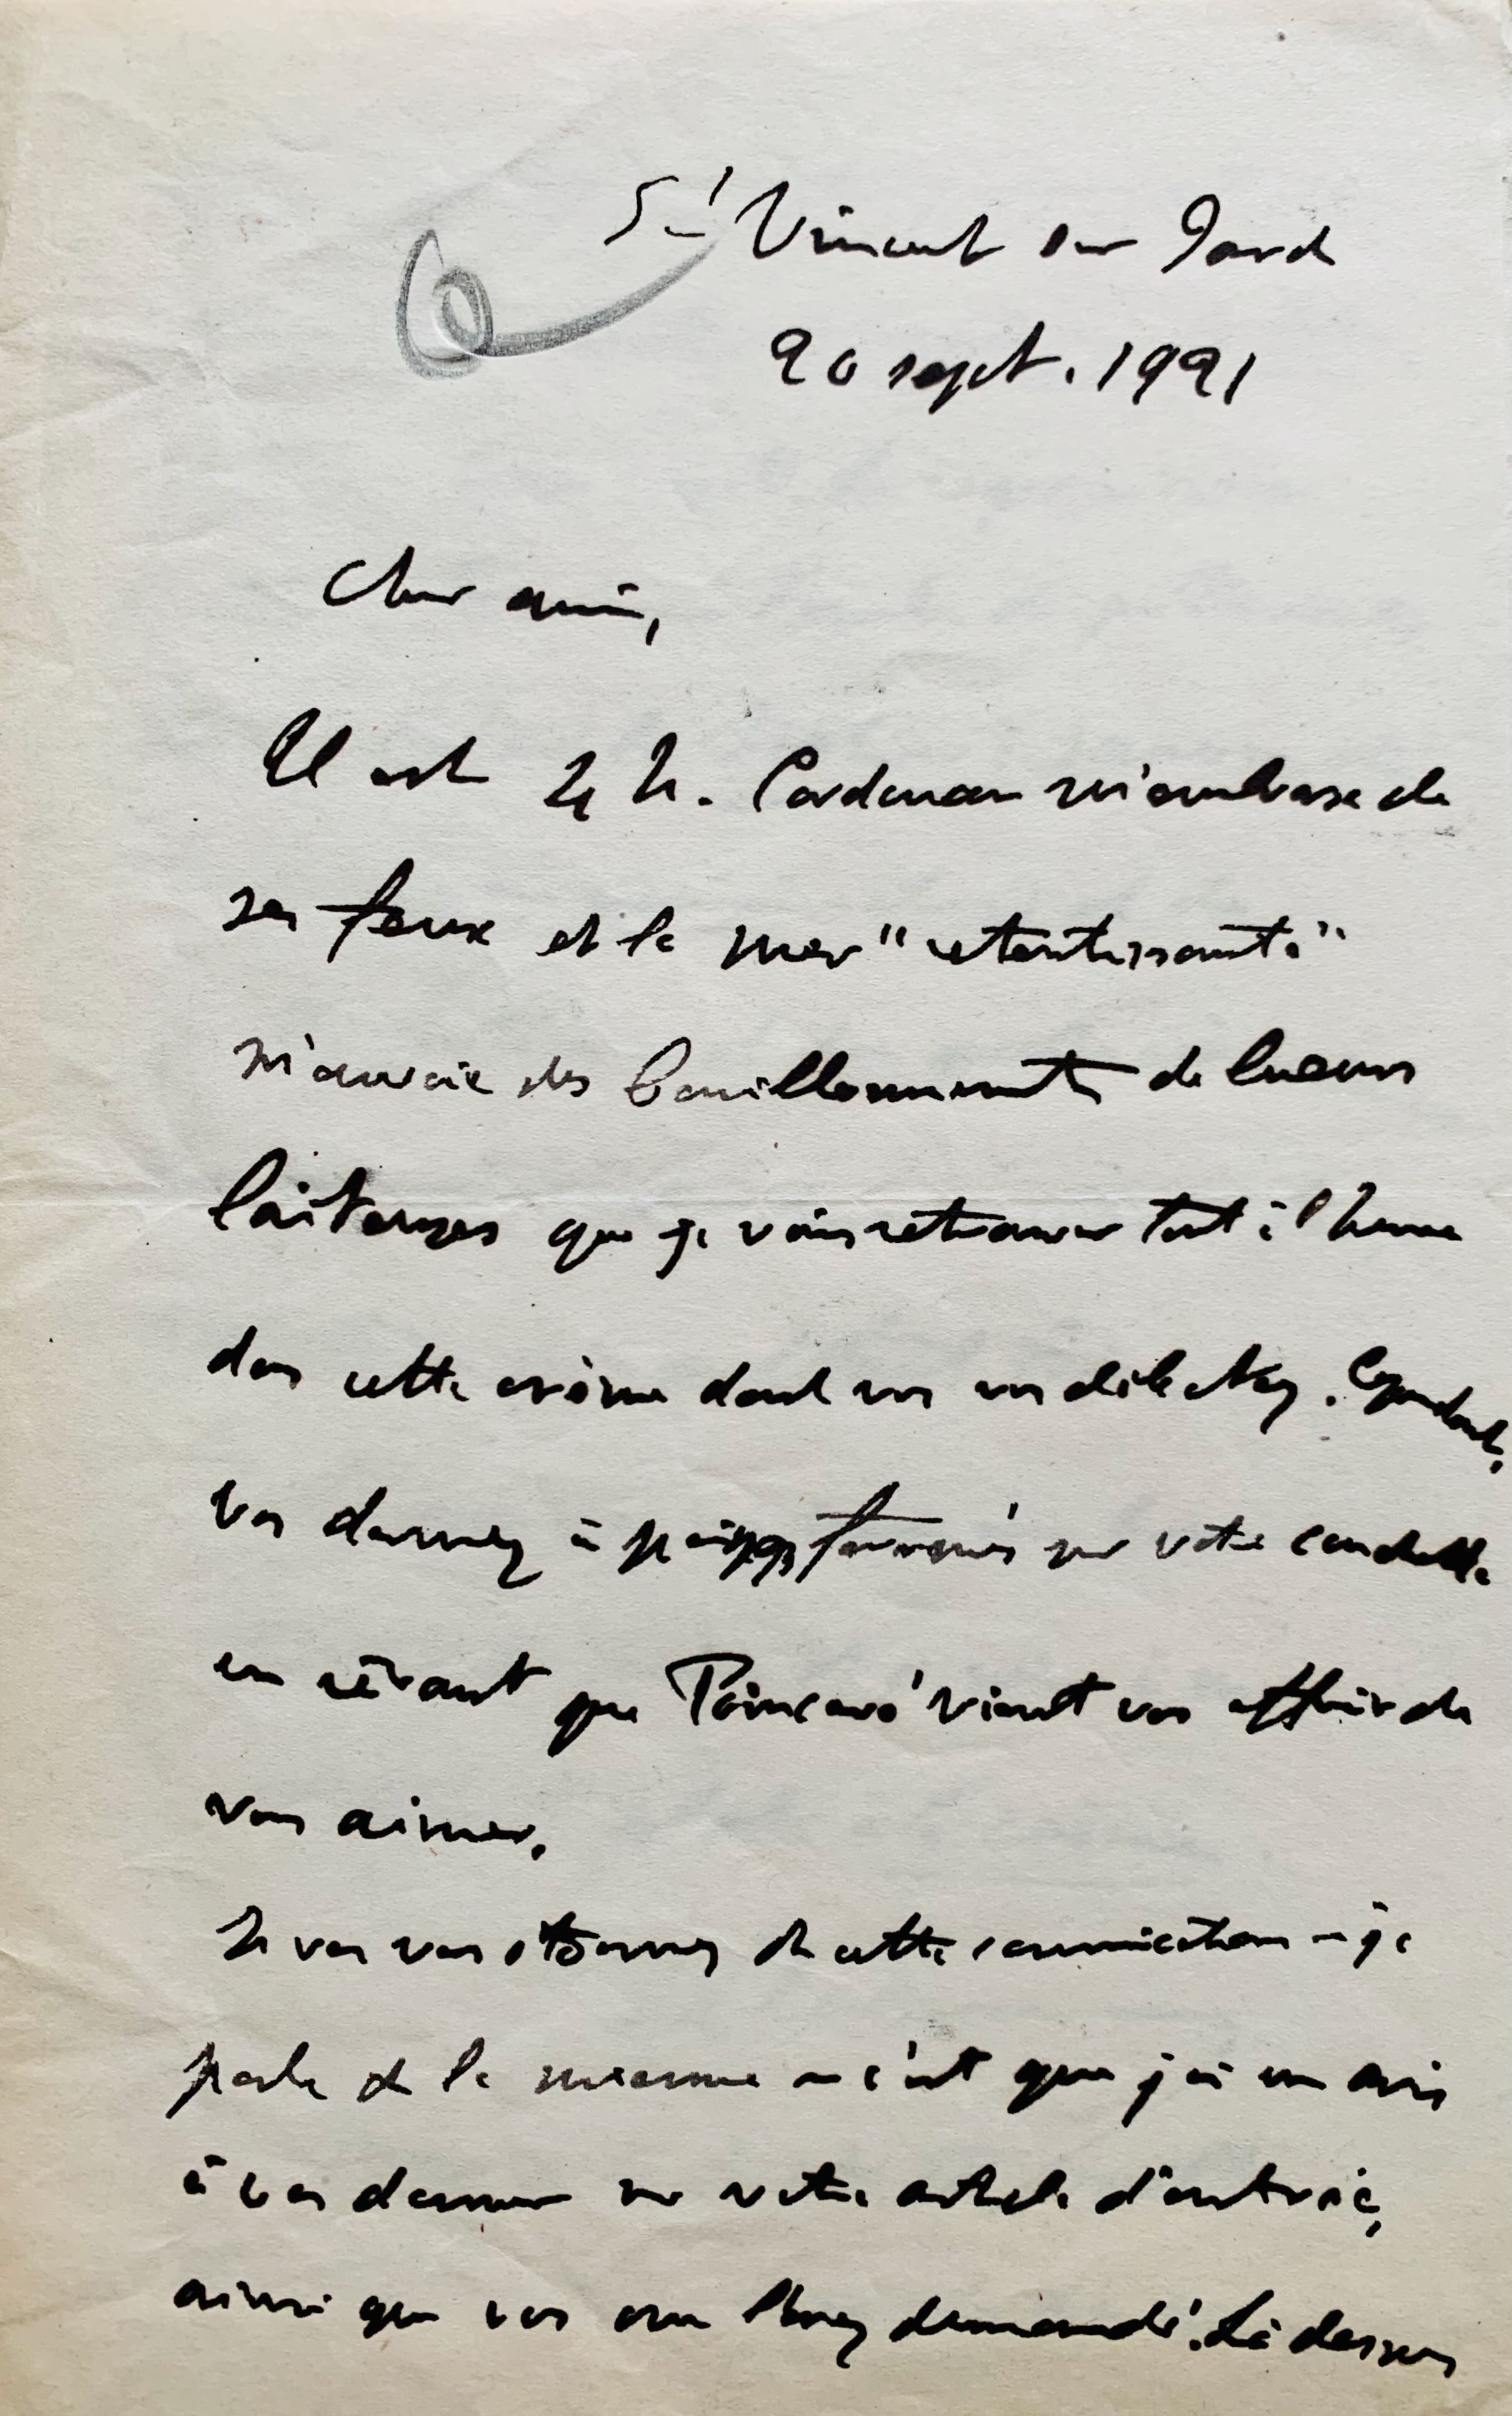 St Vincent sur Jard
20 sept. 1921
Cher ami,
Il est 4 h. Cordouan m'embrase de
ses feux et la mer "retentissante"
m'envoie des bouillonnements de lueurs
laiteuses que je vais retrouver tout à l'heure
dans cette crème dont vous vous délectez. Cependant,
vous dormez à poings fermés sur votre couchette
en rêvant que Poincaré vient vous offrir de
vous aimer.
Si vous vous étonnez de cette communication — je
parle de la mienne — c'est que j'ai un avis
à vous donner sur votre article d'entrée,
ainsi que vous me l'avez demandé. Là dessus